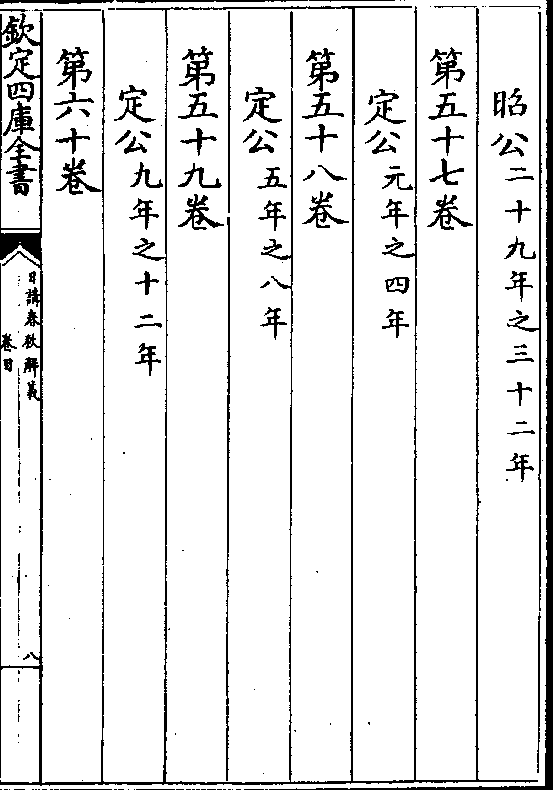 昭公二十九年之三十二年
第五十七卷
定公元年之四年
第五十八卷
定公五年之八年
第五十九卷
定公九年之十二年
第六十卷
欽定四庫全書
日講春秋解義
卷目
八